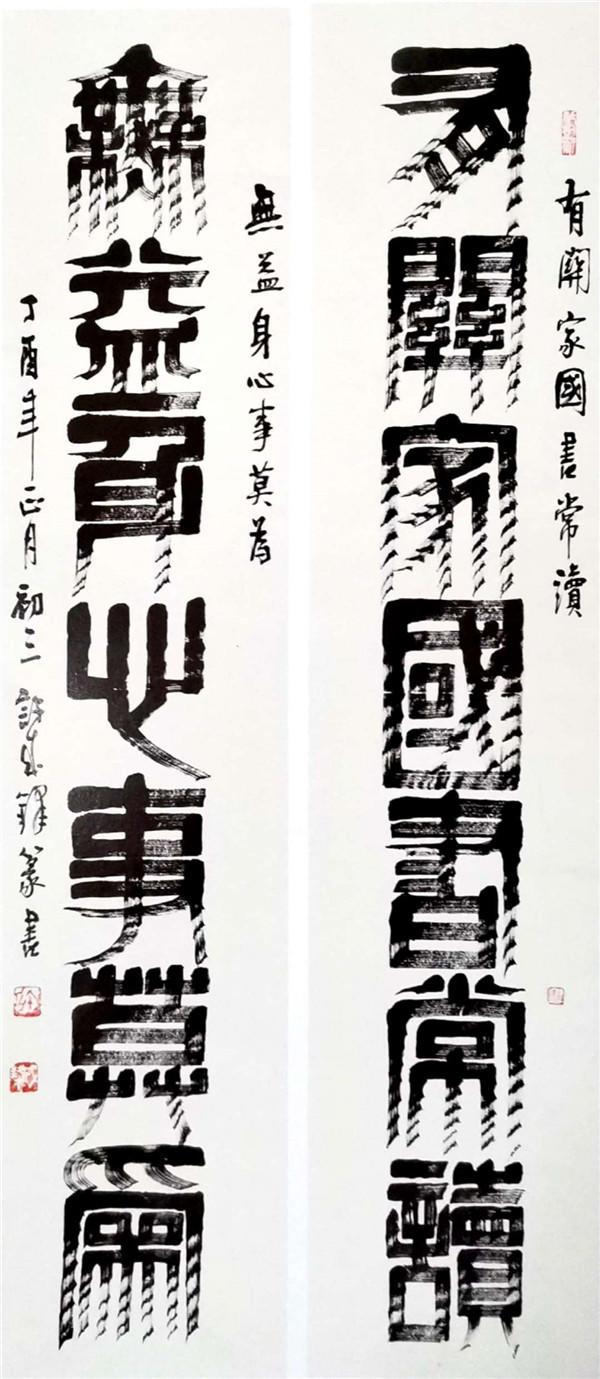 有關家國書常讀
有關家國書常讀
無益身心事莫為
無益身心事莫為
丁酉年正月初三 篆書